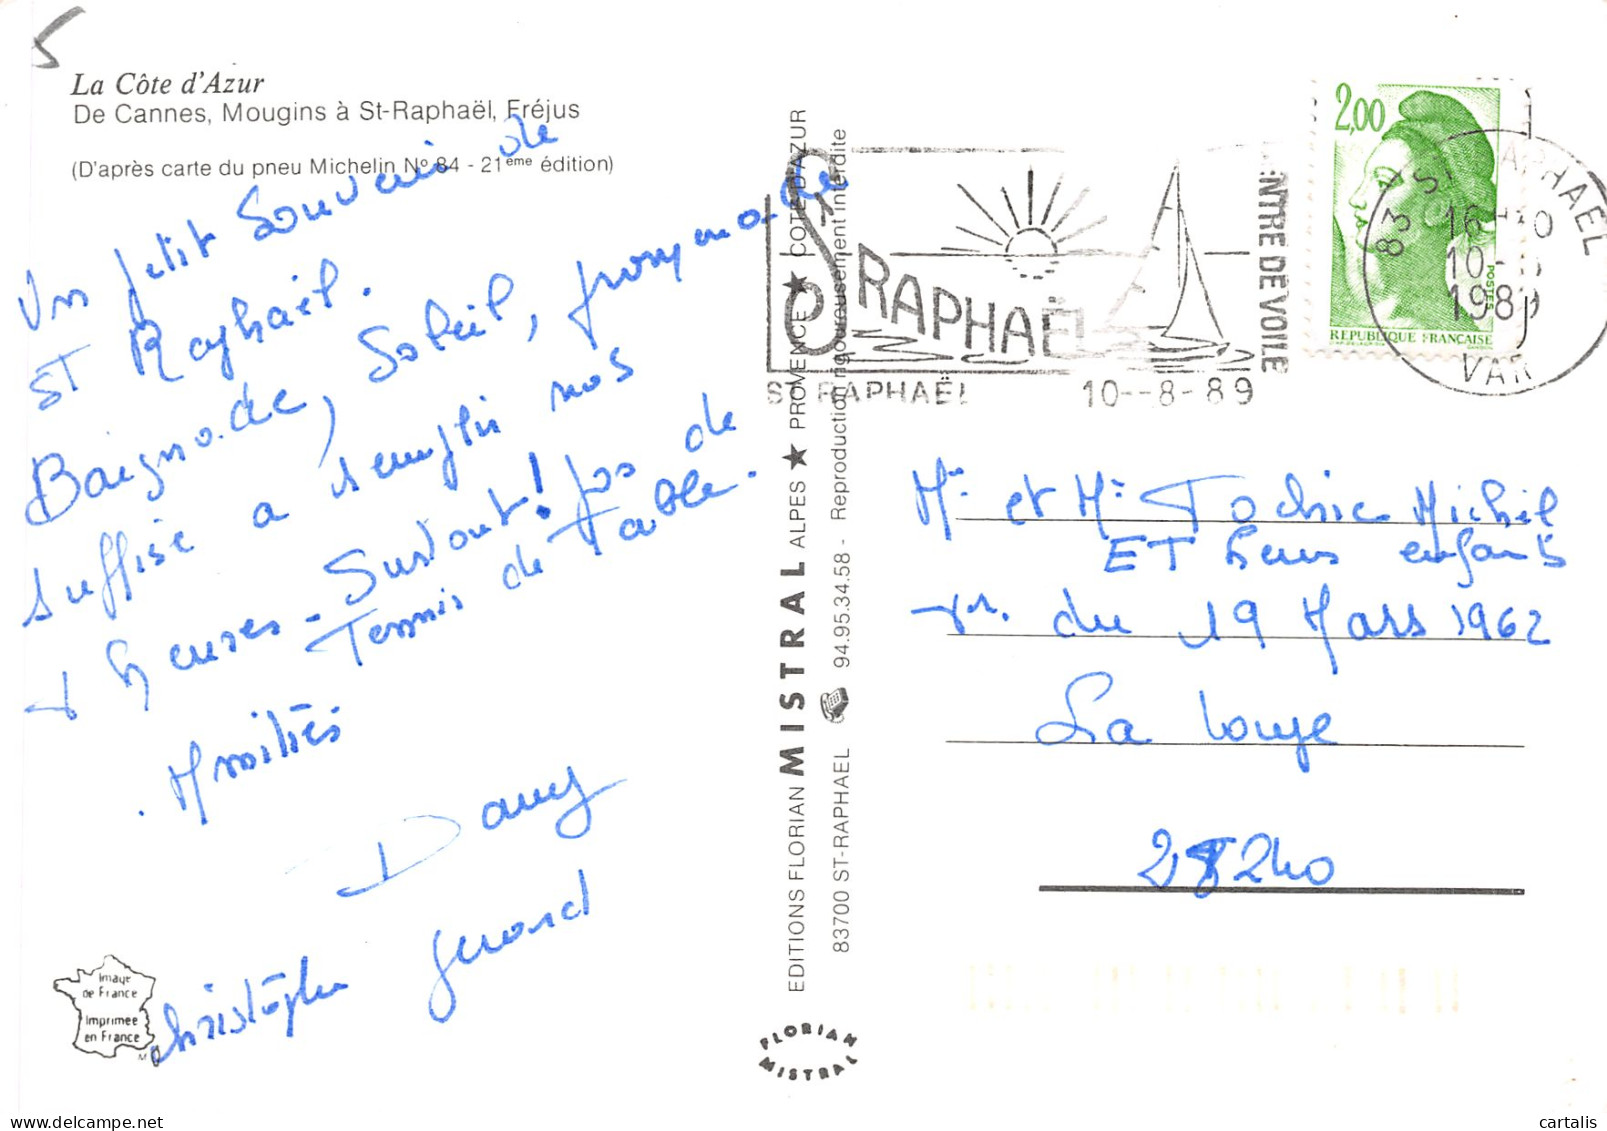 La Côte d'Azur
De Cannes, Mougins à St-Raphaël, Fréjus
(D'après carte du pneu Michelin Nº 84 - 21ème édition)
Un petit souvenir de
ST Raphaël.
Baignade, Soleil, promenade
suffise a remplir nos
heures - Surtout! pas de
Tennis de Table.
Amitiés
Dany
Christophe Gérard
Image
de France
Imprimée
en France
EDITIONS FLORIAN MISTRAL ALPES ★ PROVENCE ★ COTE D'AZUR
83700 ST-RAPHAEL 94.95.34.58 - Reproduction rigoureusement interdite
FLORIAN
MISTRAL
ST RAPHAËL
NTRE DE VOILE
ST RAPHAËL 10--8-89
2,00
POSTES
REPUBLIQUE FRANÇAISE
83 ST RAPHAEL
16
10
1989
VAR
Mr et Me Tochic Michel
ET Leurs enfants
r. du 19 Mars 1962
La Loupe
28240
cartalis